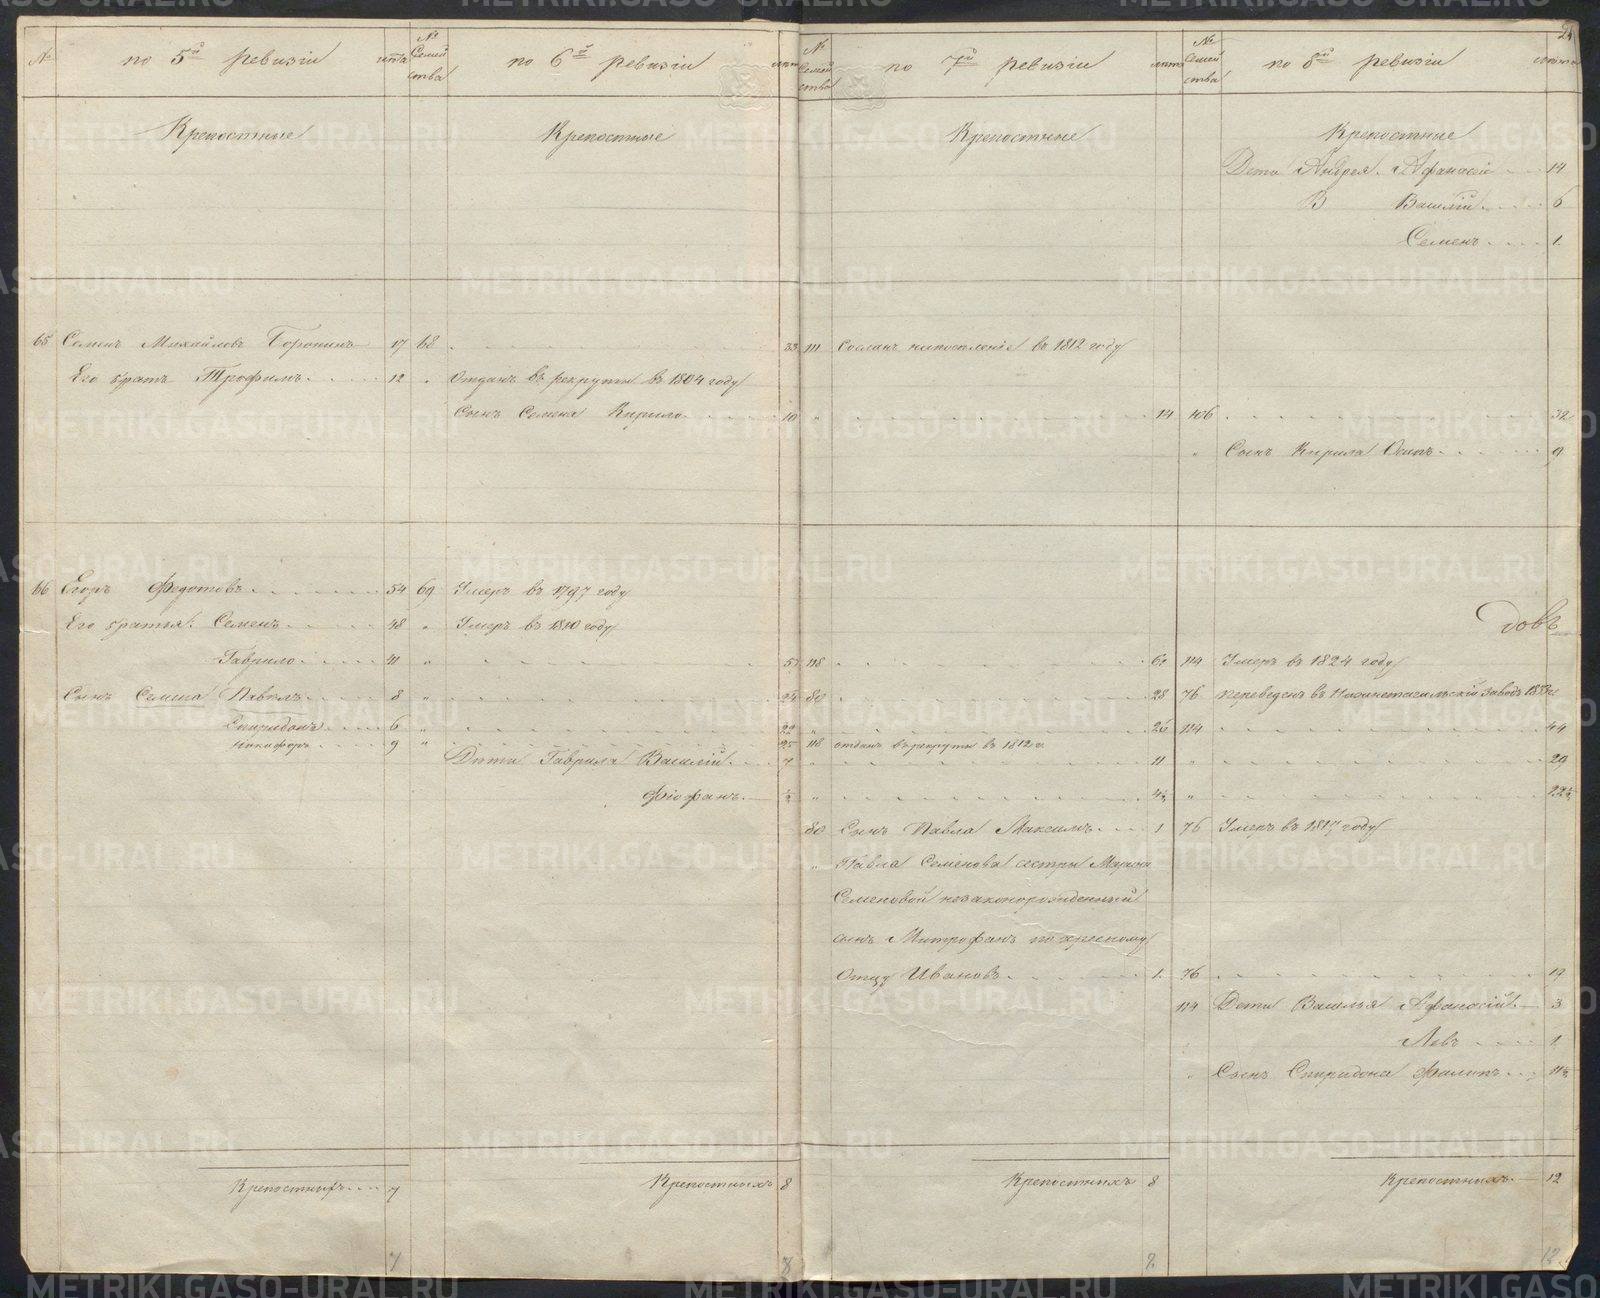 № по 5й ревизіи лѣта № Семейства по 6й ревизіи лѣта № Семейства по 7й ревизіи лѣта № Семейства по 8й ревизіи лѣта
Крепостные Крепостные Крепостные Крепостные
Дети Андрея Афанасій 14
В Василій 6
Семенъ 1
65 Семенъ Михайловъ 17 68 33 111 Сосланъ на поселеніе въ 1812 году
Его братъ Трофимъ 12 " Отданъ въ рекруты въ 1804 году
Сынъ Семена Кирило 10 " 14 106 32
" Сынъ Кирила Осипъ 9
66 Егоръ Федотовъ 54 69 Умеръ въ 1797 году
Его братья Семенъ 48 " Умеръ въ 1810 году
Гаврило 41 " 57 118 114 Умеръ въ 1824 году
Сынъ Семена Павелъ 8 " 24 80 28 76 переведенъ въ Нижнетагильскій заводъ
Спиридонъ 6 " 22 " 26 114 44
Никифоръ 9 " 25 118 отданъ въ рекруты въ 1812 г.
Дети Гаврила Василій 7 " 11 " 29
Фіофанъ ½ " 4½ " 22½
80 Сынъ Павла Максимъ 1 76 Умеръ въ 1817 году
" Павла Семенова сестры Марии
Семеновой незаконорожденный
сынъ Митрофанъ по кресному
Отцу Ивановъ 1 76 19
114 Дети Василья Афанасій 3
Левъ 1
" Сынъ Спиридона Филипъ 11½
Крепостныхъ 7 Крепостныхъ 8 Крепостныхъ 8 Крепостныхъ 12
7 8 8 12
METRIKI.GASO-URAL.RU